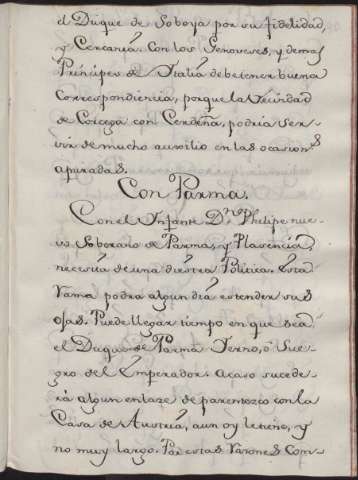 el Duque de Soboya por su fidelidad,
y Cercania. Con los Genoveses, y demas
Prinsipes de Italia debe tener buena
Correspondiencia, porque la Vecindad
de Corcega con Cerdeña, podria ser-
vir de mucho auxilio en las ocasions
apuradas.
Con Parma.
Con el Infante Dn. Phelipe nue-
vo Soborano de Parma, y Plasencia,
necesita de una diestra Politica. Esta
Rama podra algun dia estender sus
ojas. Puede llegar tiempo en que sea
el Duque de Parma Yerno, ó Sue-
gro del Emperador. Acaso sucede-
rá algun enlaze de parentezco con la
Casa de Austria, aun oy letiene, y
no muy largo. Por estas Rasones Con-